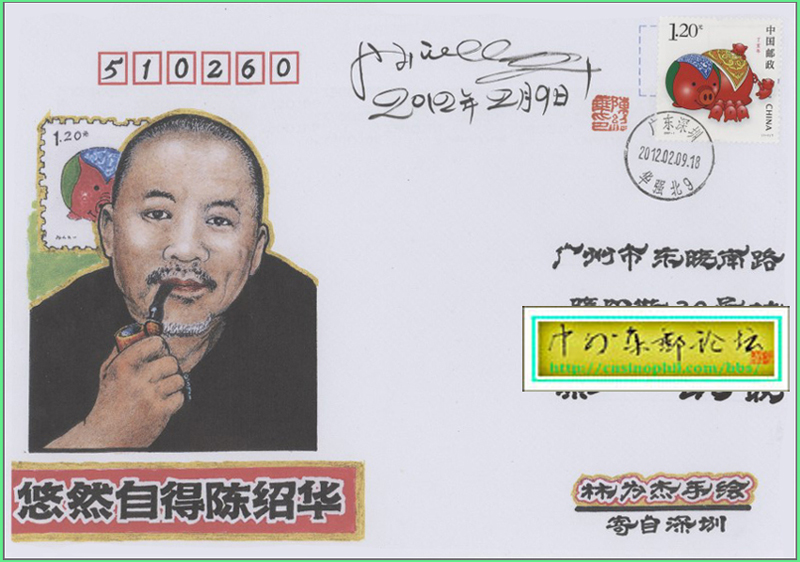 510260
2012年2月9日
1.20元
中国邮政
CHINA
广东深圳
2012.02.09.18
华强北9
1.20元
广州市东晓南路
中外集邮论坛
http://cnsinophil.com/bbs/
悠然自得陈绍华
林为杰手绘
寄自深圳